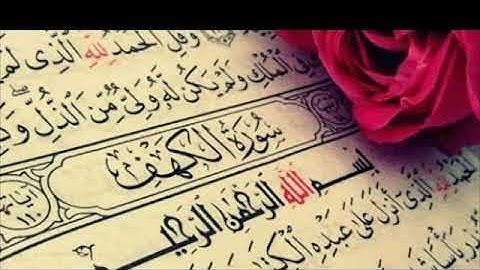 وَقُلِ الْحَمْدُ لِلَّهِ الَّذِي لَمْ
فِي الْمُلْكِ وَلَمْ يَكُن لَّهُ وَلِيٌّ مِّنَ الذُّلِّ
سُورَةُ الْكَهْفِ
بِسْمِ اللَّهِ الرَّحْمَٰنِ الرَّحِيمِ
الْحَمْدُ لِلَّهِ الَّذِي أَنزَلَ عَلَىٰ عَبْدِهِ الْكِتَٰ